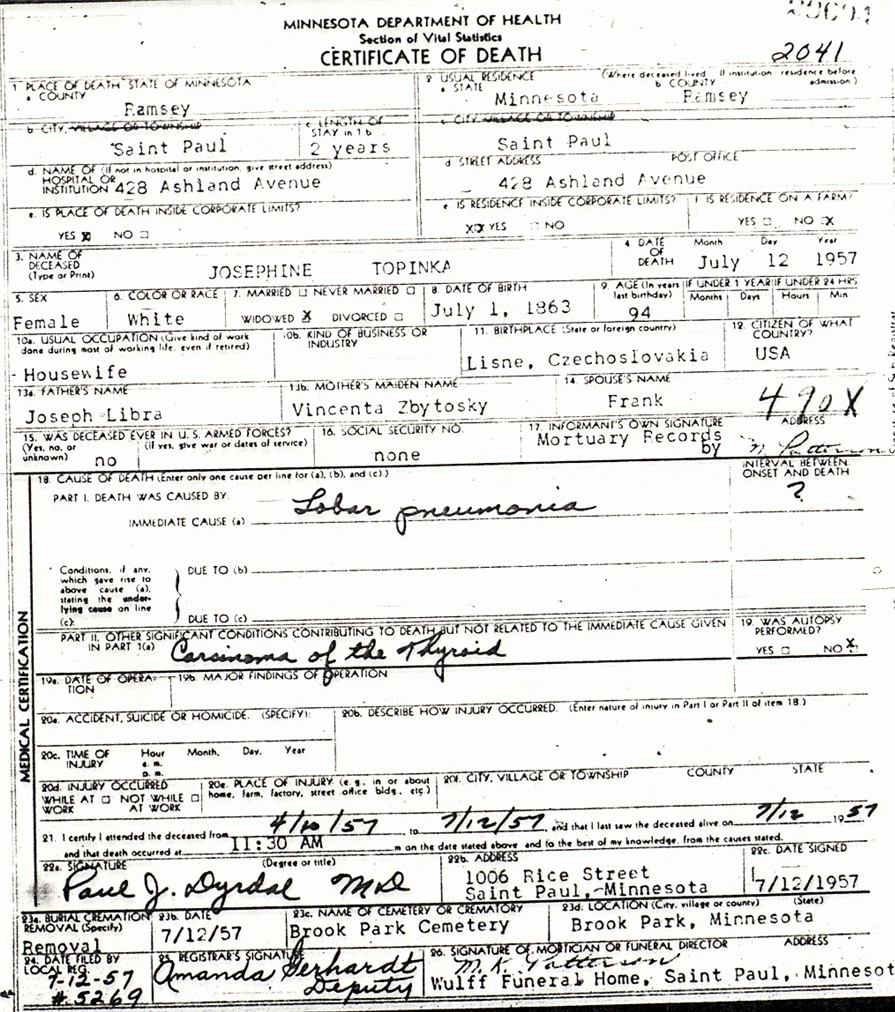 MINNESOTA DEPARTMENT OF HEALTH
Section of Vital Statistics
CERTIFICATE OF DEATH
2041
1 PLACE OF DEATH STATE OF MINNESOTA
a. COUNTY
Ramsey
2 USUAL RESIDENCE (Where deceased lived. If institution residence before admission.)
a STATE b. COUNTY
Minnesota Ramsey
b CITY, VILLAGE OR TOWNSHIP
Saint Paul
c LENGTH OF STAY in 1 b
2 years
c CITY, VILLAGE OR TOWNSHIP
Saint Paul
d. NAME OF (If not in hospital or institution, give street address)
HOSPITAL OR
INSTITUTION 428 Ashland Avenue
d STREET ADDRESS POST OFFICE
428 Ashland Avenue
e. IS PLACE OF DEATH INSIDE CORPORATE LIMITS?
YES X NO
e IS RESIDENCE INSIDE CORPORATE LIMITS?
XX YES NO
f IS RESIDENCE ON A FARM?
YES NO X
3. NAME OF
DECEASED
(Type or Print)
JOSEPHINE TOPINKA
4 DATE OF DEATH Month Day Year
July 12 1957
5. SEX
Female
6. COLOR OR RACE
White
7. MARRIED NEVER MARRIED
WIDOWED X DIVORCED
8. DATE OF BIRTH
July 1, 1863
9. AGE (In years last birthday)
94
IF UNDER 1 YEAR IF UNDER 24 HRS
Months Days Hours Min
10a. USUAL OCCUPATION (Give kind of work done during most of working life, even if retired)
Housewife
10b. KIND OF BUSINESS OR INDUSTRY
11. BIRTHPLACE (State or foreign country)
Lisne, Czechoslovakia
12. CITIZEN OF WHAT COUNTRY?
USA
13a. FATHER'S NAME
Joseph Libra
13b. MOTHER'S MAIDEN NAME
Vincenta Zbytosky
14. SPOUSE'S NAME
Frank
490X
15. WAS DECEASED EVER IN U.S. ARMED FORCES?
(Yes, no, or unknown) (If yes, give war or dates of service)
no
16. SOCIAL SECURITY NO.
none
17. INFORMANT'S OWN SIGNATURE ADDRESS
Mortuary Records
by M. Patterson
18. CAUSE OF DEATH (Enter only one cause per line for (a), (b), and (c).)
INTERVAL BETWEEN ONSET AND DEATH
PART I. DEATH WAS CAUSED BY:
IMMEDIATE CAUSE (a) Lobar pneumonia ?
Conditions, if any,
which gave rise to
above cause (a),
stating the under-
lying cause on line
(c):
DUE TO (b)
DUE TO (c)
PART II. OTHER SIGNIFICANT CONDITIONS CONTRIBUTING TO DEATH BUT NOT RELATED TO THE IMMEDIATE CAUSE GIVEN
IN PART 1(a) Carsinoma of the Thyroid
19. WAS AUTOPSY PERFORMED?
YES NO X
19a. DATE OF OPERATION
19b. MAJOR FINDINGS OF OPERATION
20a. ACCIDENT, SUICIDE OR HOMICIDE. (SPECIFY):
20b. DESCRIBE HOW INJURY OCCURRED. (Enter nature of injury in Part I or Part II of item 18.)
20c. TIME OF INJURY Hour Month, Day, Year
a. m.
p. m.
20d. INJURY OCCURRED
WHILE AT WORK NOT WHILE AT WORK
20e. PLACE OF INJURY (e.g., in or about home, farm, factory, street office bldg., etc)
20f. CITY, VILLAGE OR TOWNSHIP COUNTY STATE
21. I certify I attended the deceased from 4/10/57 to 7/12/57, and that I last saw the deceased alive on 7/12 1957
and that death occurred at 11:30 AM m on the date stated above and to the best of my knowledge, from the causes stated.
22a. SIGNATURE (Degree or title)
Paul J. Dyrdal MD
22b. ADDRESS
1006 Rice Street
Saint Paul, Minnesota
22c. DATE SIGNED
7/12/1957
23a. BURIAL CREMATION
REMOVAL (Specify)
Removal
23b. DATE
7/12/57
23c. NAME OF CEMETERY OR CREMATORY
Brook Park Cemetery
23d. LOCATION (City, village or county) (State)
Brook Park, Minnesota
24. DATE FILED BY LOCAL REG.
7-12-57
#5269
25. REGISTRAR'S SIGNATURE
Amanda Gerhardt
Deputy
26. SIGNATURE OF MORTICIAN OR FUNERAL DIRECTOR ADDRESS
M. K. Patterson
Wulff Funeral Home, Saint Paul, Minnesot
MEDICAL CERTIFICATION